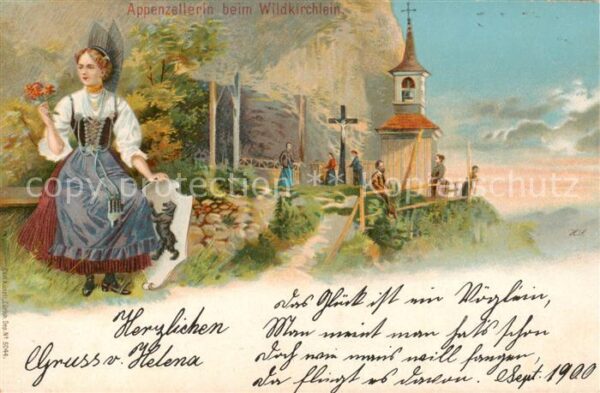 Appenzellerin beim Wildkirchlein.
copyright protection Kopierschutz
Herzlichen
Gruss v. Helena
Das Glück ist ein Vöglein,
Man meint man hats schon
Doch wie mans will fangen,
Da fliegt es davon. Sept. 1900